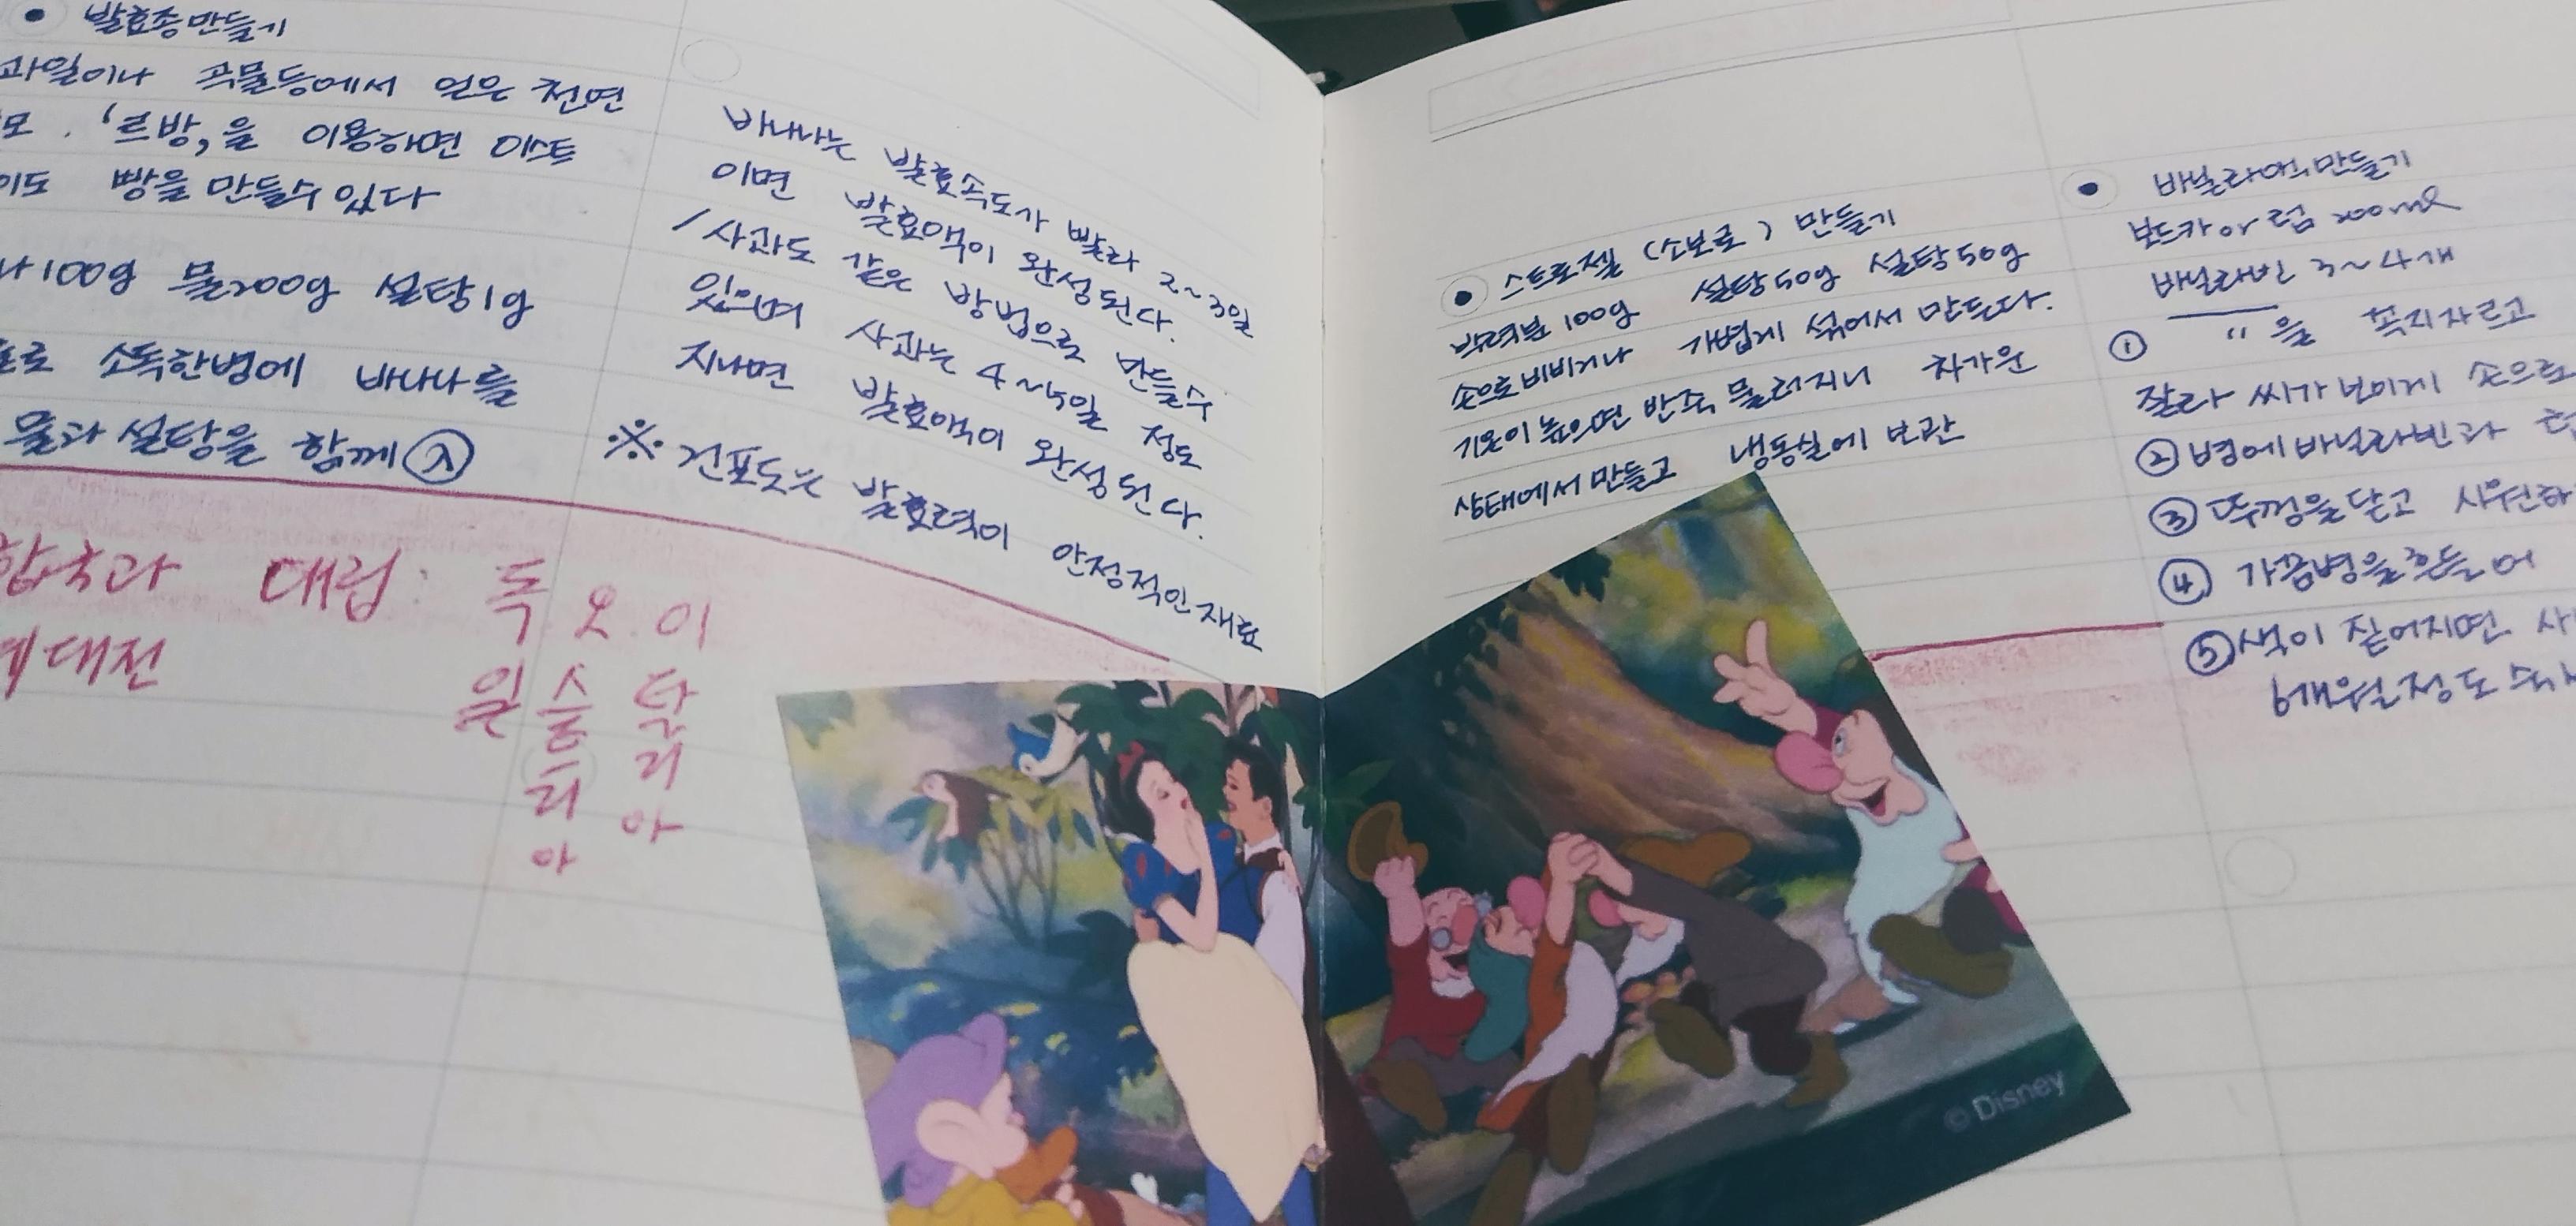 발효종만들기
과일이나 곡물등에서 얻은 천연
모. '르방,을 이용하면 이스트
이도 빵을 만들수 있다
나100g 물200g 설탕1g
로 소독한병에 바나나를
물과 설탕을 함께 ㉦
합국과 대립: 독일 오스트리아 이탈리아
대전
바나나는 발효속도가 빨라 2~3일
이면 발효액이 완성된다.
/사과도 같은 방법으로 만들수
있으며 사과는 4~5일 정도
지나면 발효액이 완성된다.
※ 건포도는 발효력이 안정적인재료
스트로젤 (소보로) 만들기
박력분 100g 설탕50g 설탕50g
손으로비비거나 가볍게 섞어서 만든다.
기온이높으면 반죽 물러지니 차가운
상태에서 만들고 냉동실에 보관
바닐라액기만들기
보드카 or 럼 200ml
바닐라빈 3~4개
① " 을 꼭지자르고
잘라 씨가보이게 손으로
②병에바닐라빈과
③뚜껑을닫고 시원하
④ 가끔병을흔들어
⑤색이 짙어지면 사
6개월정도 숙성
© Disney